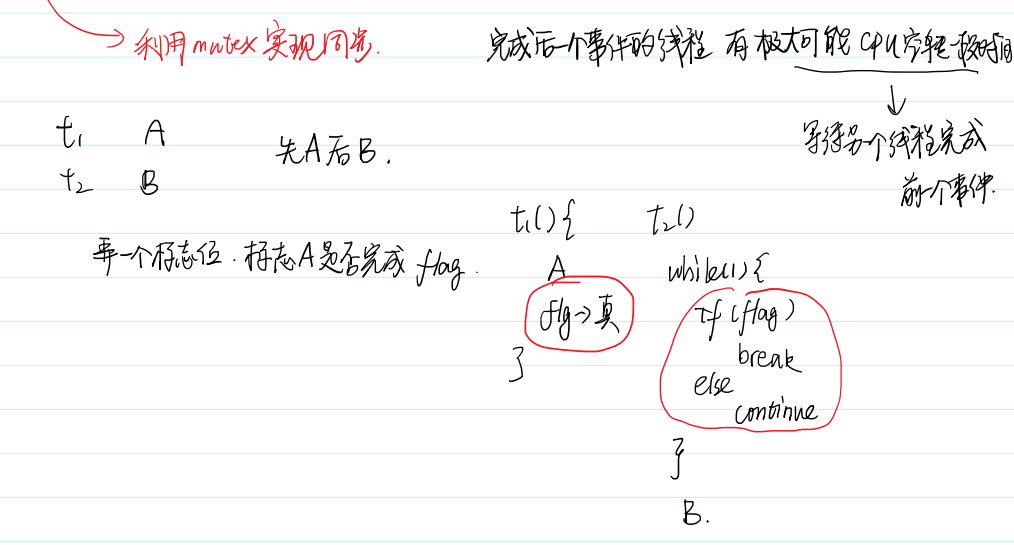 利用mutex实现同步.
完成后一个事件的线程 有极大可能 CPU空转一段时间
等待另一个线程完成
前一个事件.
t1 A
t2 B
先A后B.
弄一个标志位. 标志A是否完成 flag.
t1() {
A
flg→真
}
t2()
while(1) {
if (flag)
break
else
continue
}
B.